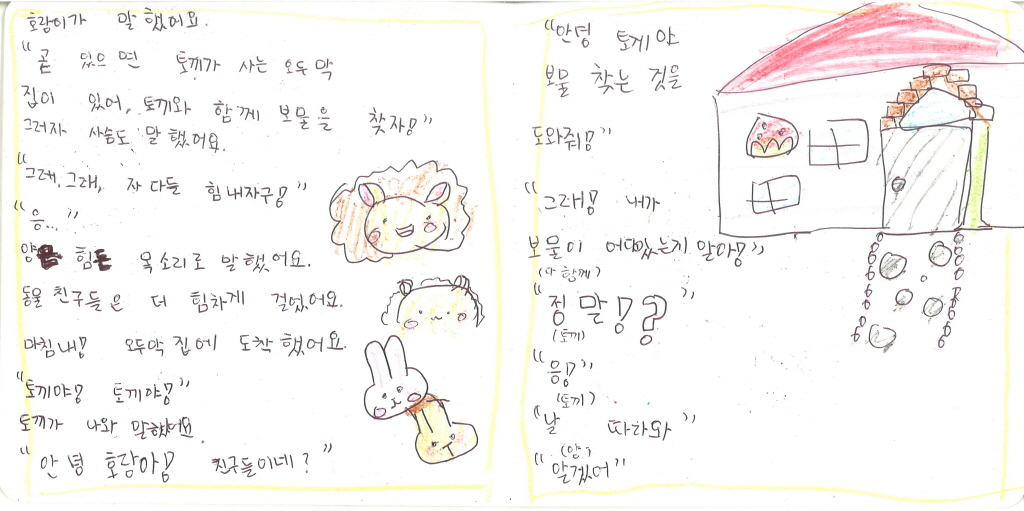 호랑이가 말했어요.
"곧 있으면 토끼가 사는 오두막
집이 있어, 토끼와 함께 보물을 찾자!"
그러자 사슴도 말했어요.
"그래, 그래, 자 다들 힘내자구!"
"응..."
양 힘든 목소리로 말했어요.
동물 친구들은 더 힘차게 걸었어요.
마침내! 오두막 집에 도착했어요.
"토끼야! 토끼야!"
토끼가 나와 말했어요.
"안녕 호랑아! 친구들이네?"
"안녕 토게야
보물 찾는 것을
도와줘!"
"그래! 내가
보물이 어딨있는지 알아!"
(다 함께)
"정말!?"
(토끼)
"응!"
(토끼)
"날 따라와"
(양)
"알겠어"